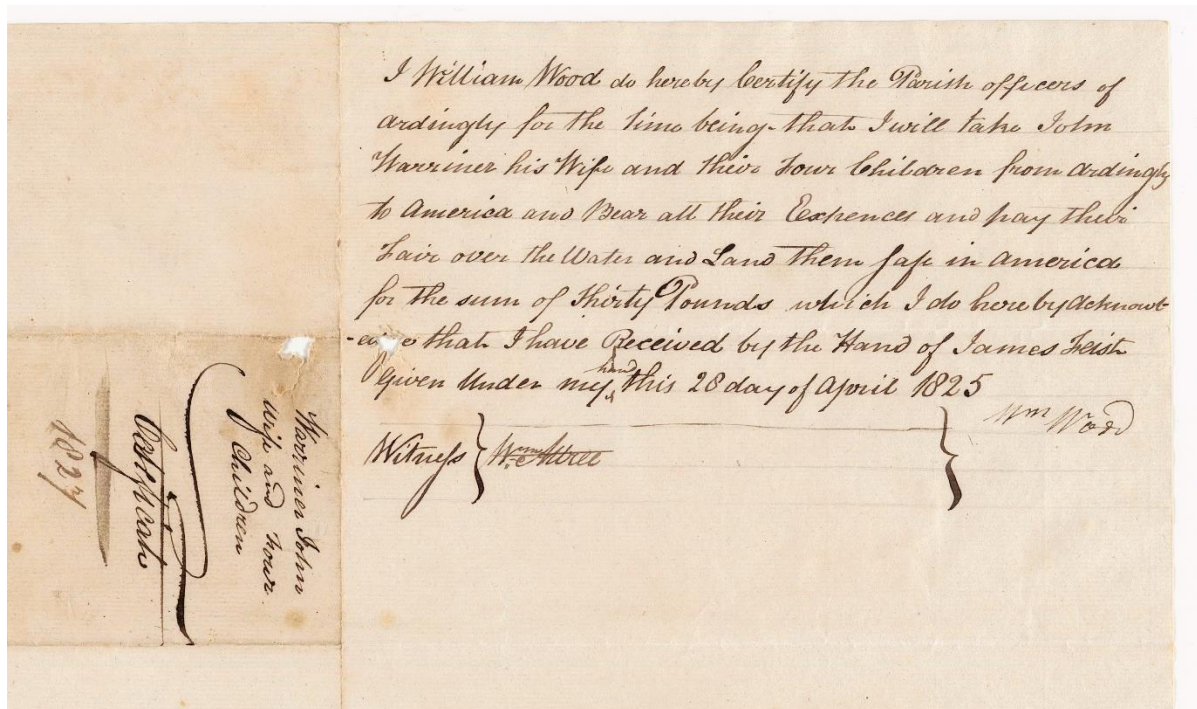 I William Wood do hereby Certify the Parish officers of
ardingly for the time being that I will take John
Warriner his Wife and their Four Children from ardingly
to America and Bear all their Expences and pay their
Fair over the Water and Land them safe in america
for the sum of thirty Pounds which I do hereby Acknowl
-edge that I have Received by the Hand of James Feist
Given Under my hand this 28 day of April 1825
Wm Wood
Witness
Warriner John
wife and Four
Children
Certificate
1827